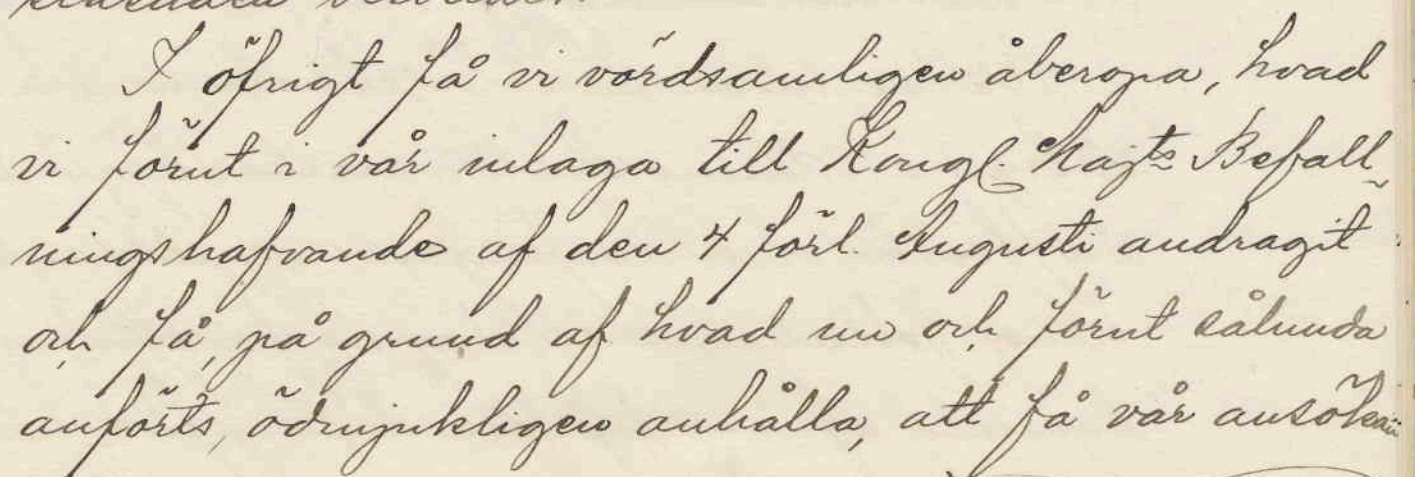 I öfrigt få vi vördsamligen åberopa, hvad
vi förut i vår inlaga till Kongl. Majts Befall-
ningshafvande af den 4 förl. Augusti andragit
och få, på grund af hvad nu och förut sålunda
anförts, ödmjukligen anhålla, att få vår ansökan